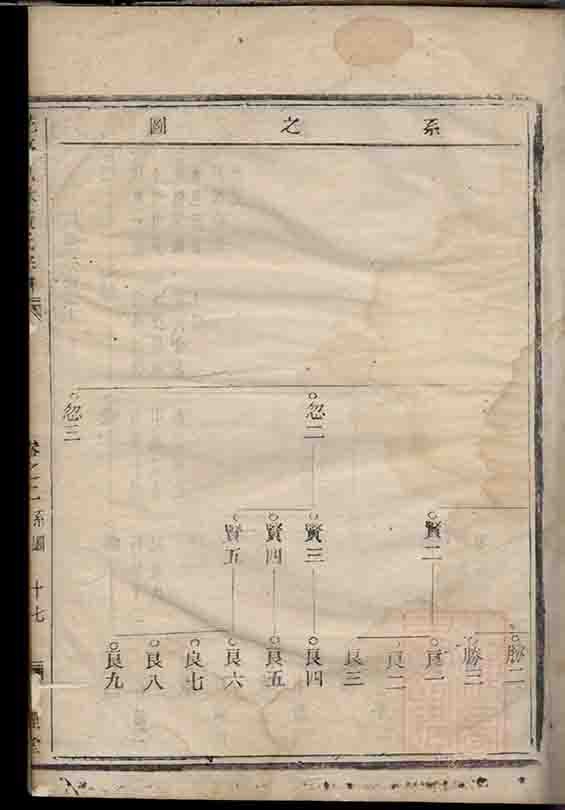 系之圖
忽二
忽三
賢二
賢三
賢四
賢五
勝二
勝三
良一
良二
良三
良四
良五
良六
良七
良八
良九
卷之二 系圖 十七